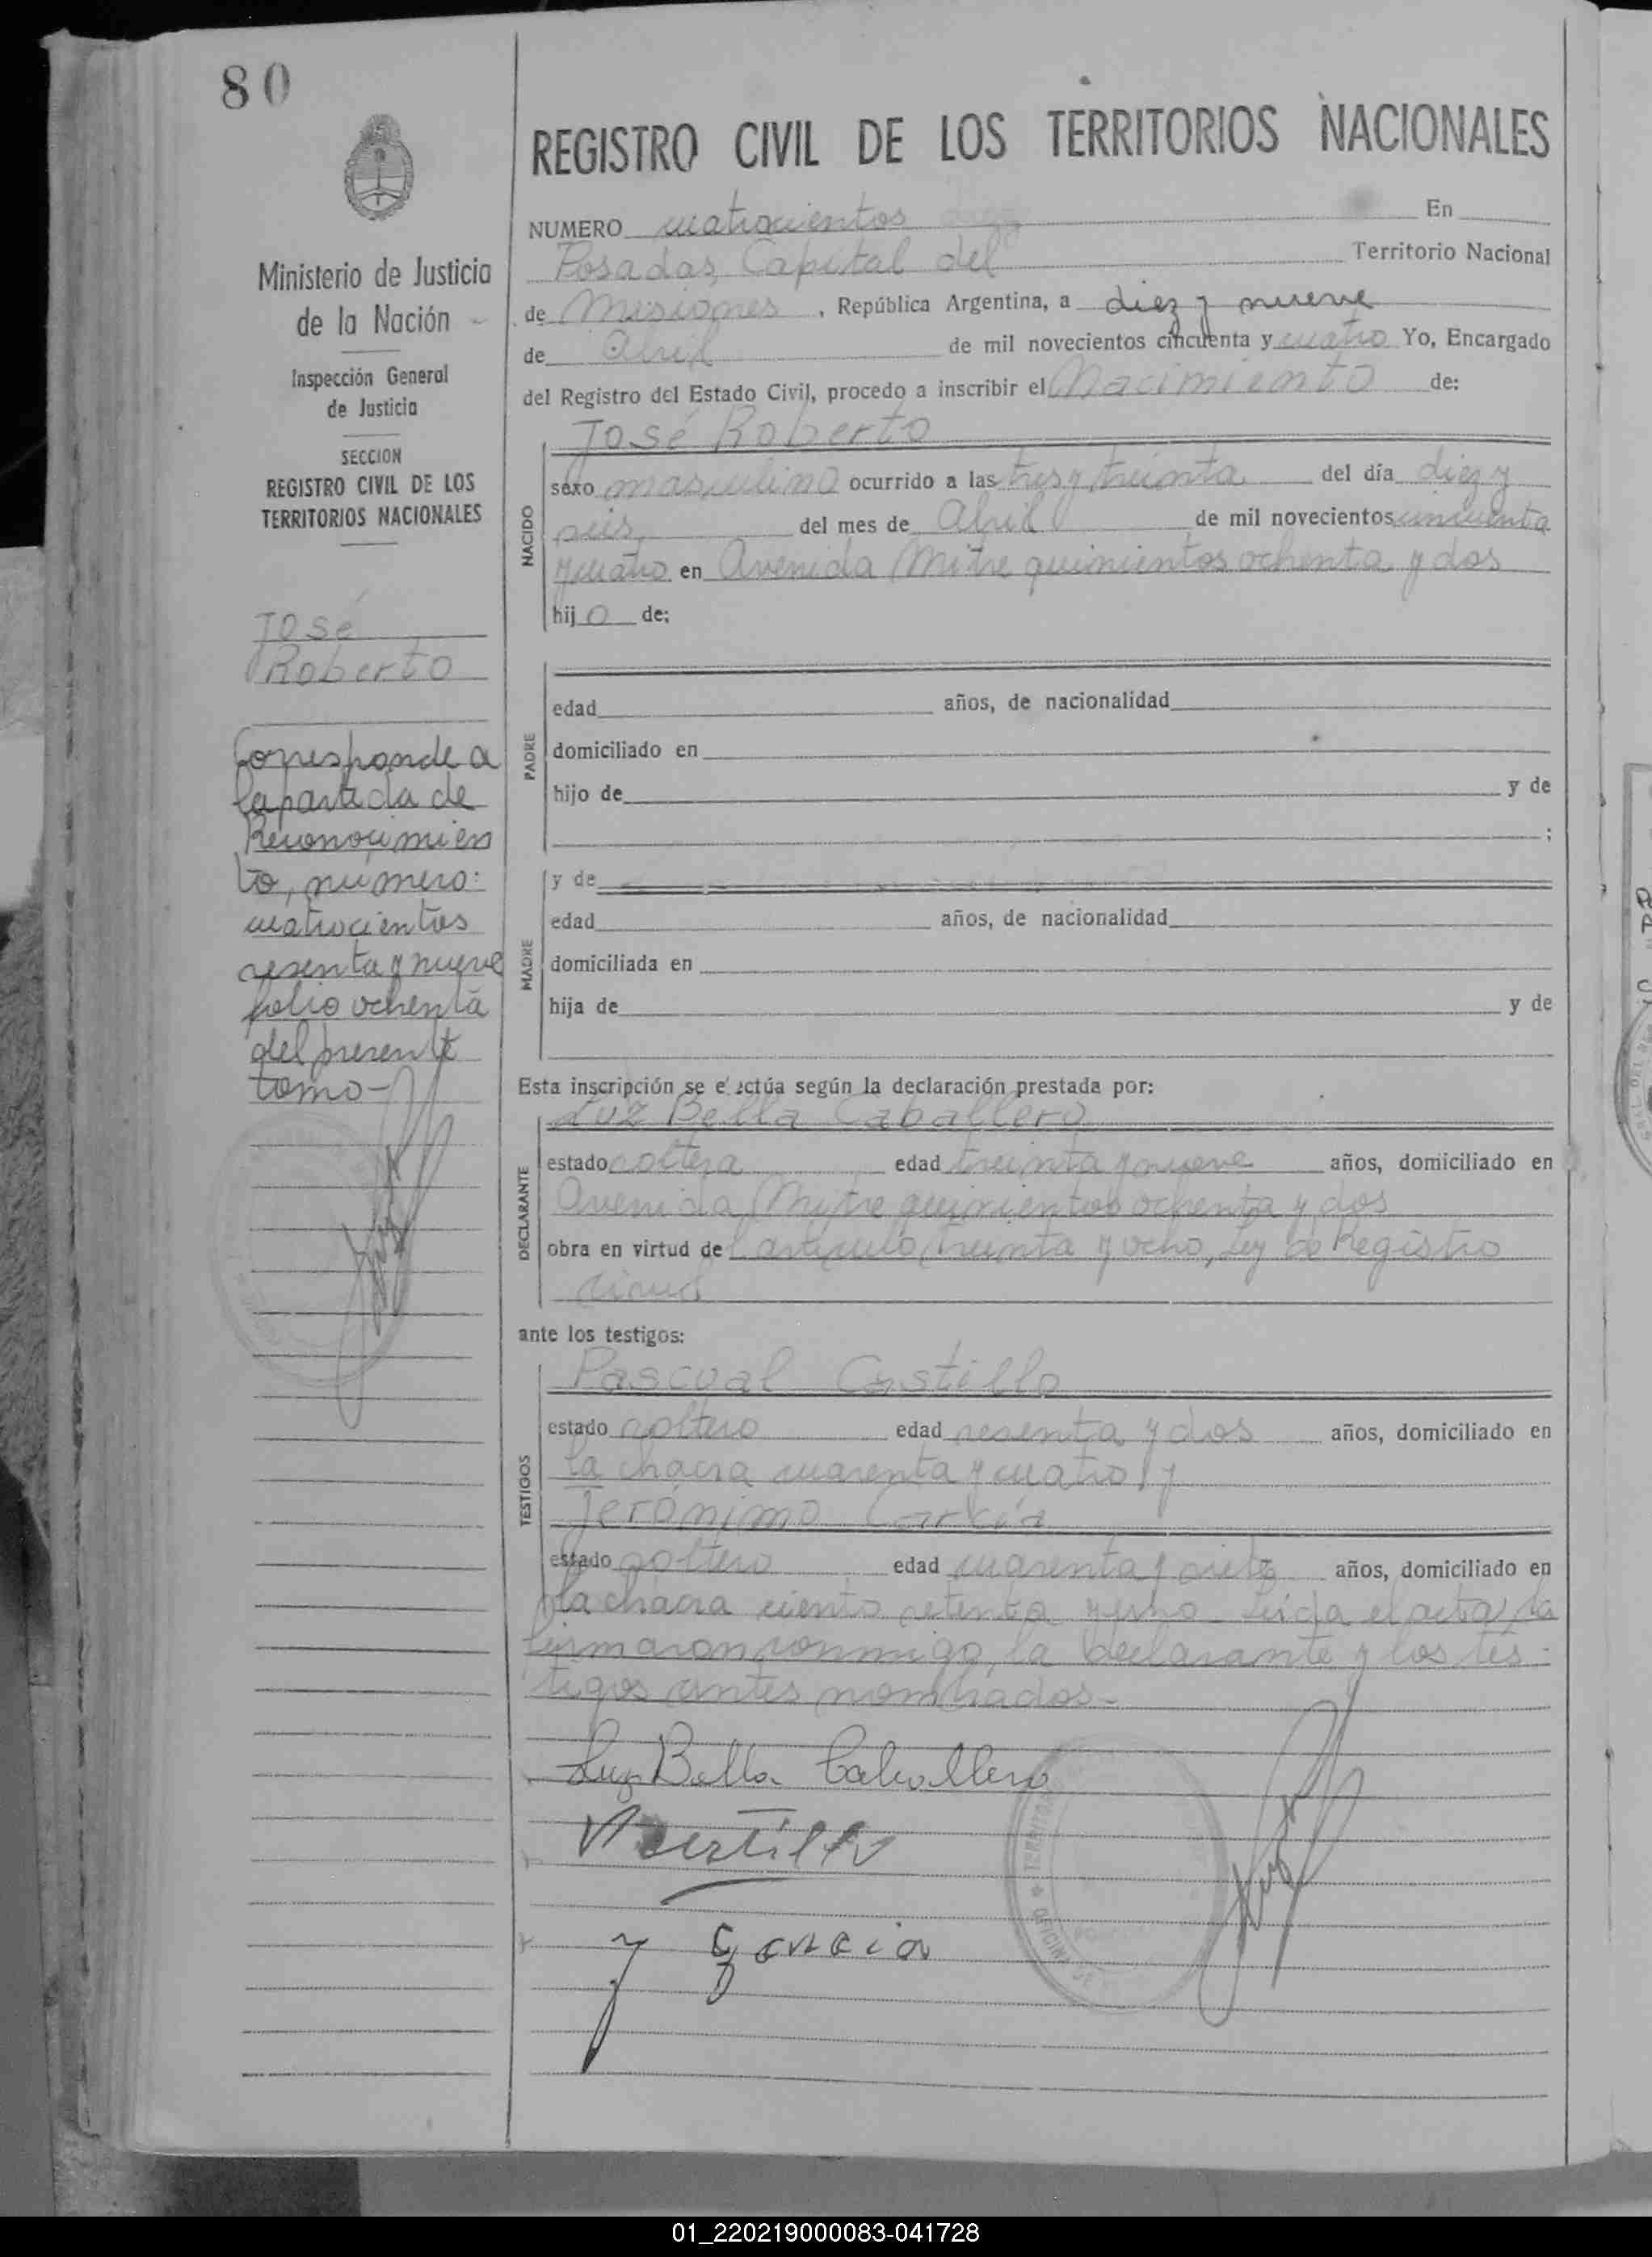 80
REGISTRO CIVIL DE LOS TERRITORIOS NACIONALES
NUMERO cuatrocientos En
Posadas, Capital del Territorio Nacional
de Misiones, República Argentina, a diez y nueve
de Abril de mil novecientos cincuenta y cuatro Yo, Encargado
del Registro del Estado Civil, procedo a inscribir el Nacimiento de:
José Roberto
NACIDO
sexo masculino ocurrido a las tres y treinta del día diez y
seis del mes de Abril de mil novecientos cincuenta
y cuatro en Avenida Mitre quinientos ochenta y dos
hijo de;
PADRE
edad años, de nacionalidad
domiciliado en
hijo de y de
;
MADRE
y de
edad años, de nacionalidad
domiciliada en
hija de y de
Esta inscripción se e ectúa según la declaración prestada por:
DECLARANTE
Luz Bella Caballero
estado soltera edad treinta y nueve años, domiciliado en
Avenida Mitre quinientos ochenta y dos
obra en virtud del artículo treinta y ocho, Ley de Registro
Civil
ante los testigos:
TESTIGOS
Pascual Castillo
estado soltero edad sesenta y dos años, domiciliado en
la chacra cuarenta y cuatro y
Jerónimo García
estado soltero edad cuarenta y siete años, domiciliado en
la chacra ciento setenta y uno Leída el acta, la
firmaron conmigo, la declarante y los tes-
tigos antes nombrados-
Luz Bella Caballero
PCastillo
J García
TERRITOR
OFICINA
Ministerio de Justicia
de la Nación
Inspección General
de Justicia
SECCION
REGISTRO CIVIL DE LOS
TERRITORIOS NACIONALES
José
Roberto
Corresponde a
la partida de
Reconocimien
to, número:
cuatrocientos
sesenta y nueve
folio ochenta
del presente
tomo-
01_220219000083-041728